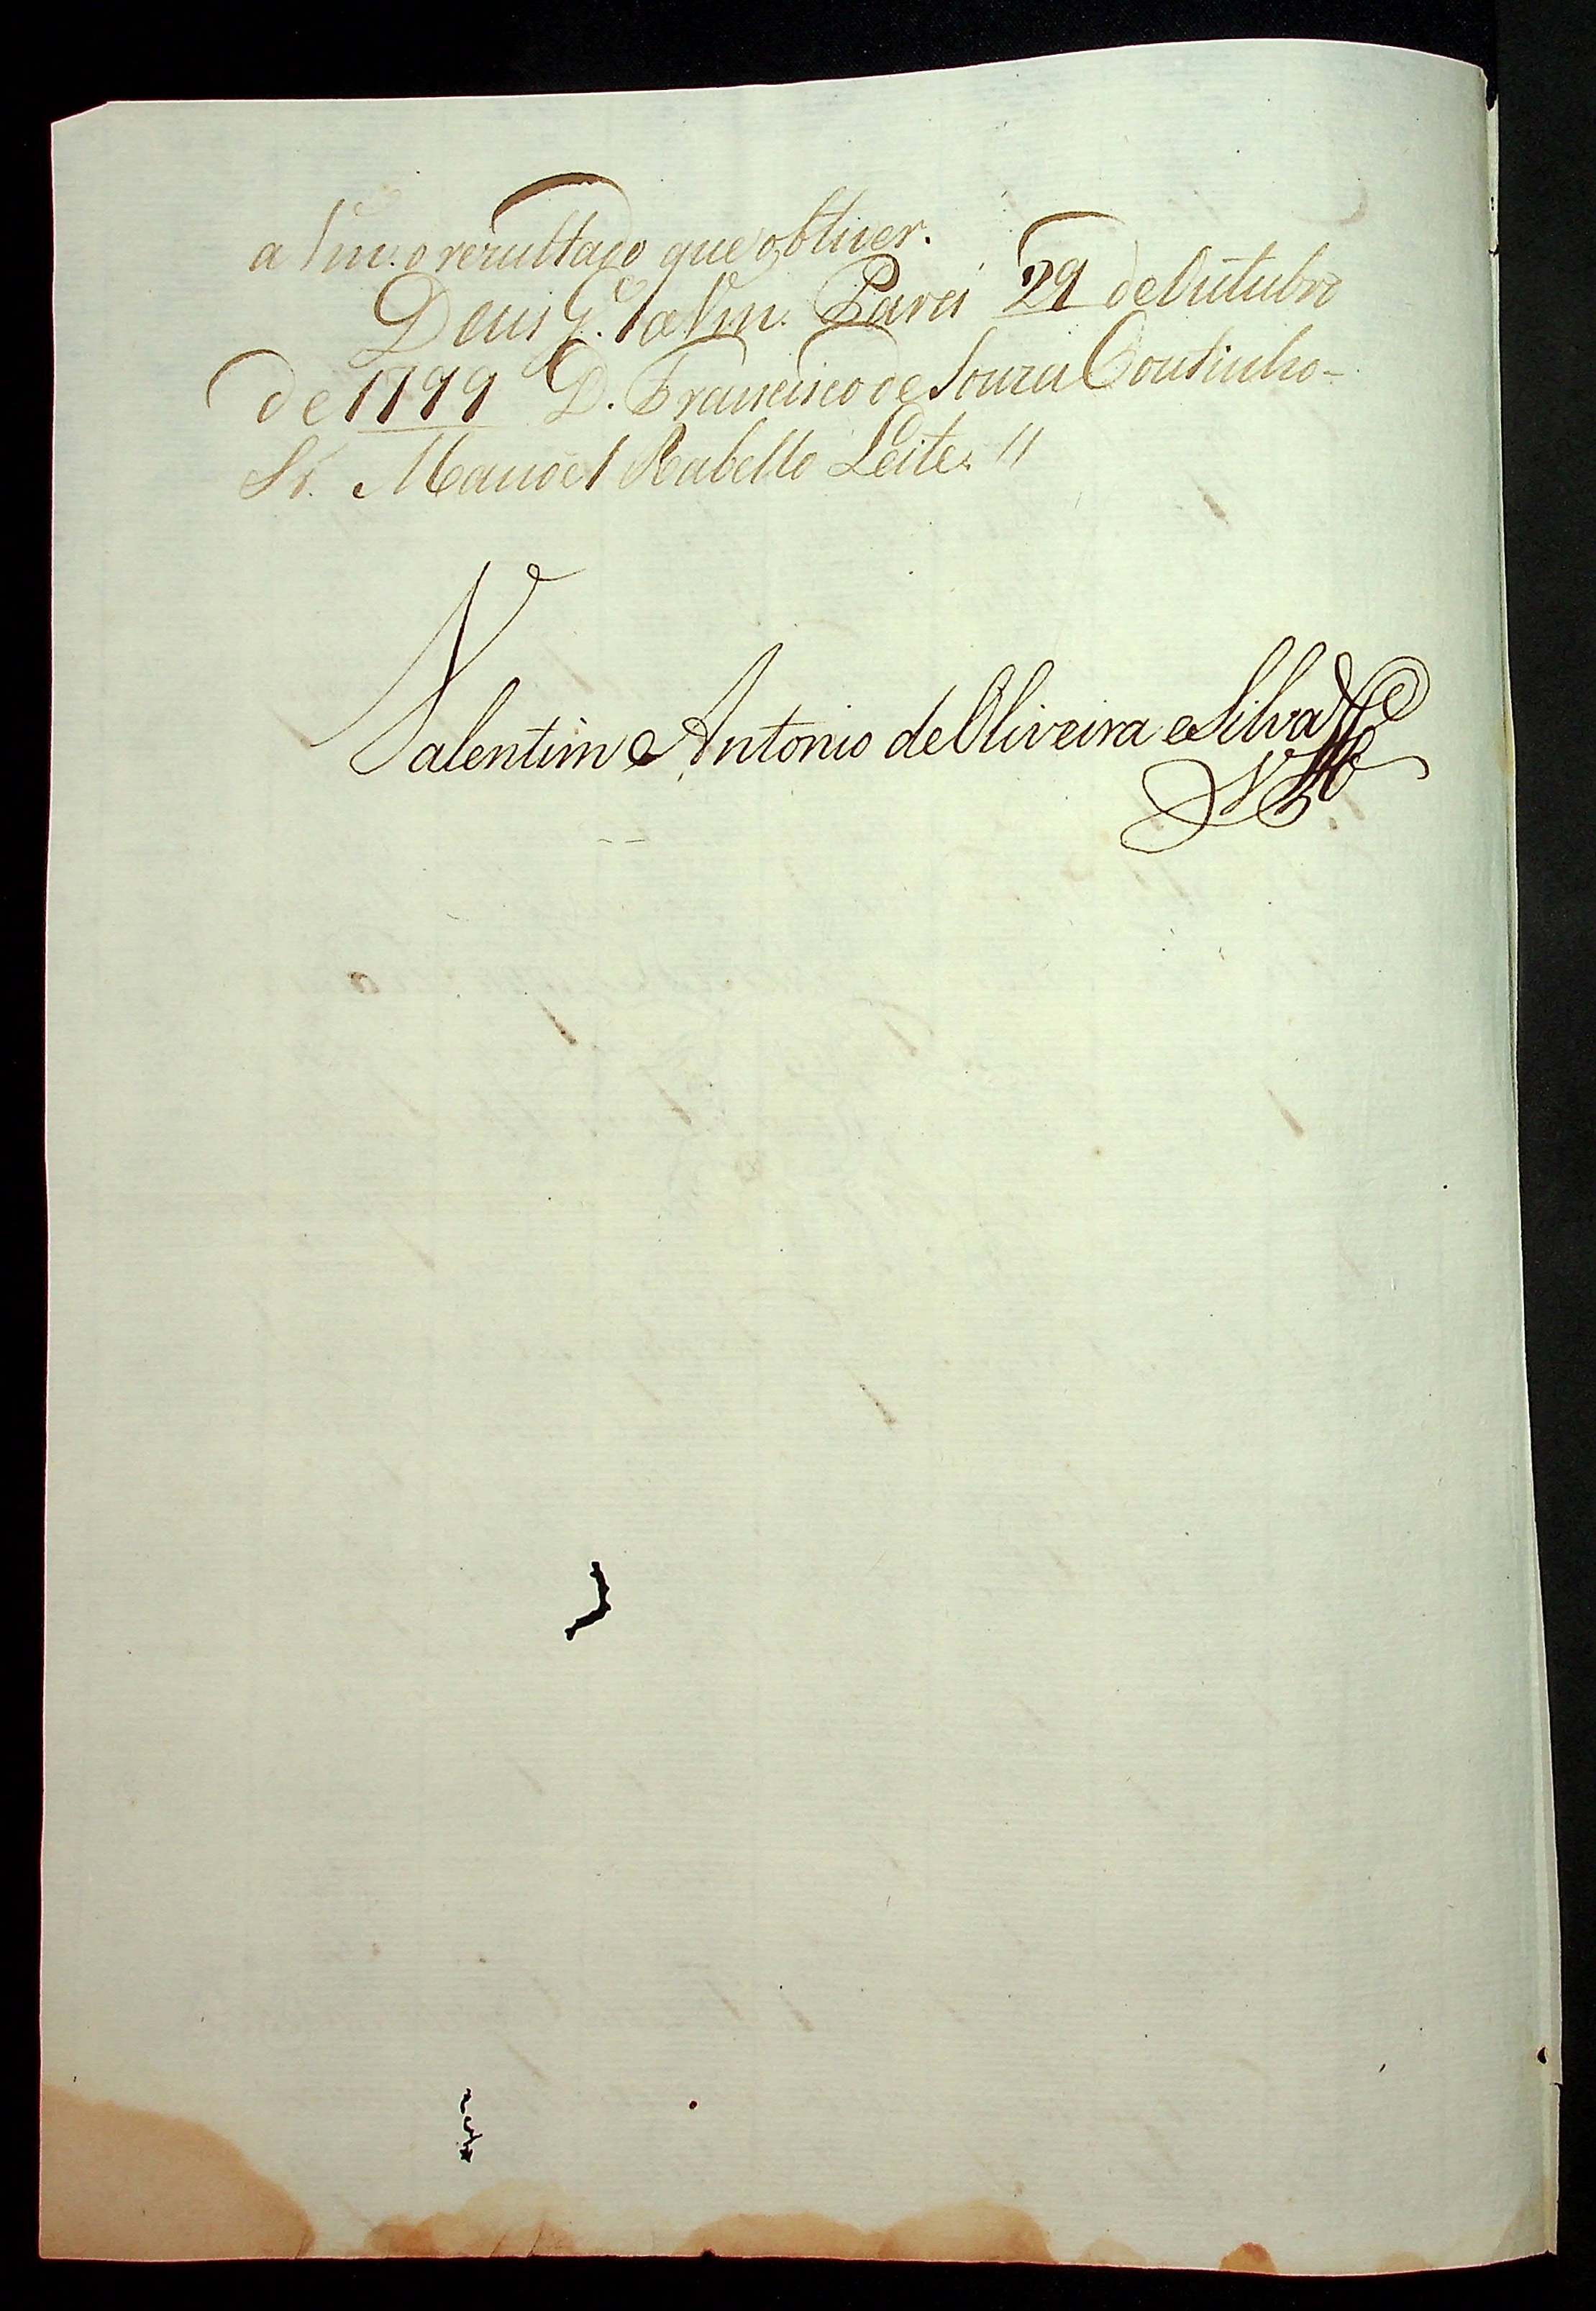 a Vm. o rezultado que obtiver.
Deus g.e a Vm. Pará 29 de Outubro
de 1799 D. Francisco de Souza Coutinho-
Sr. Manoel Rabello Leite. //
Valentim Antonio de Oliveira e Silva